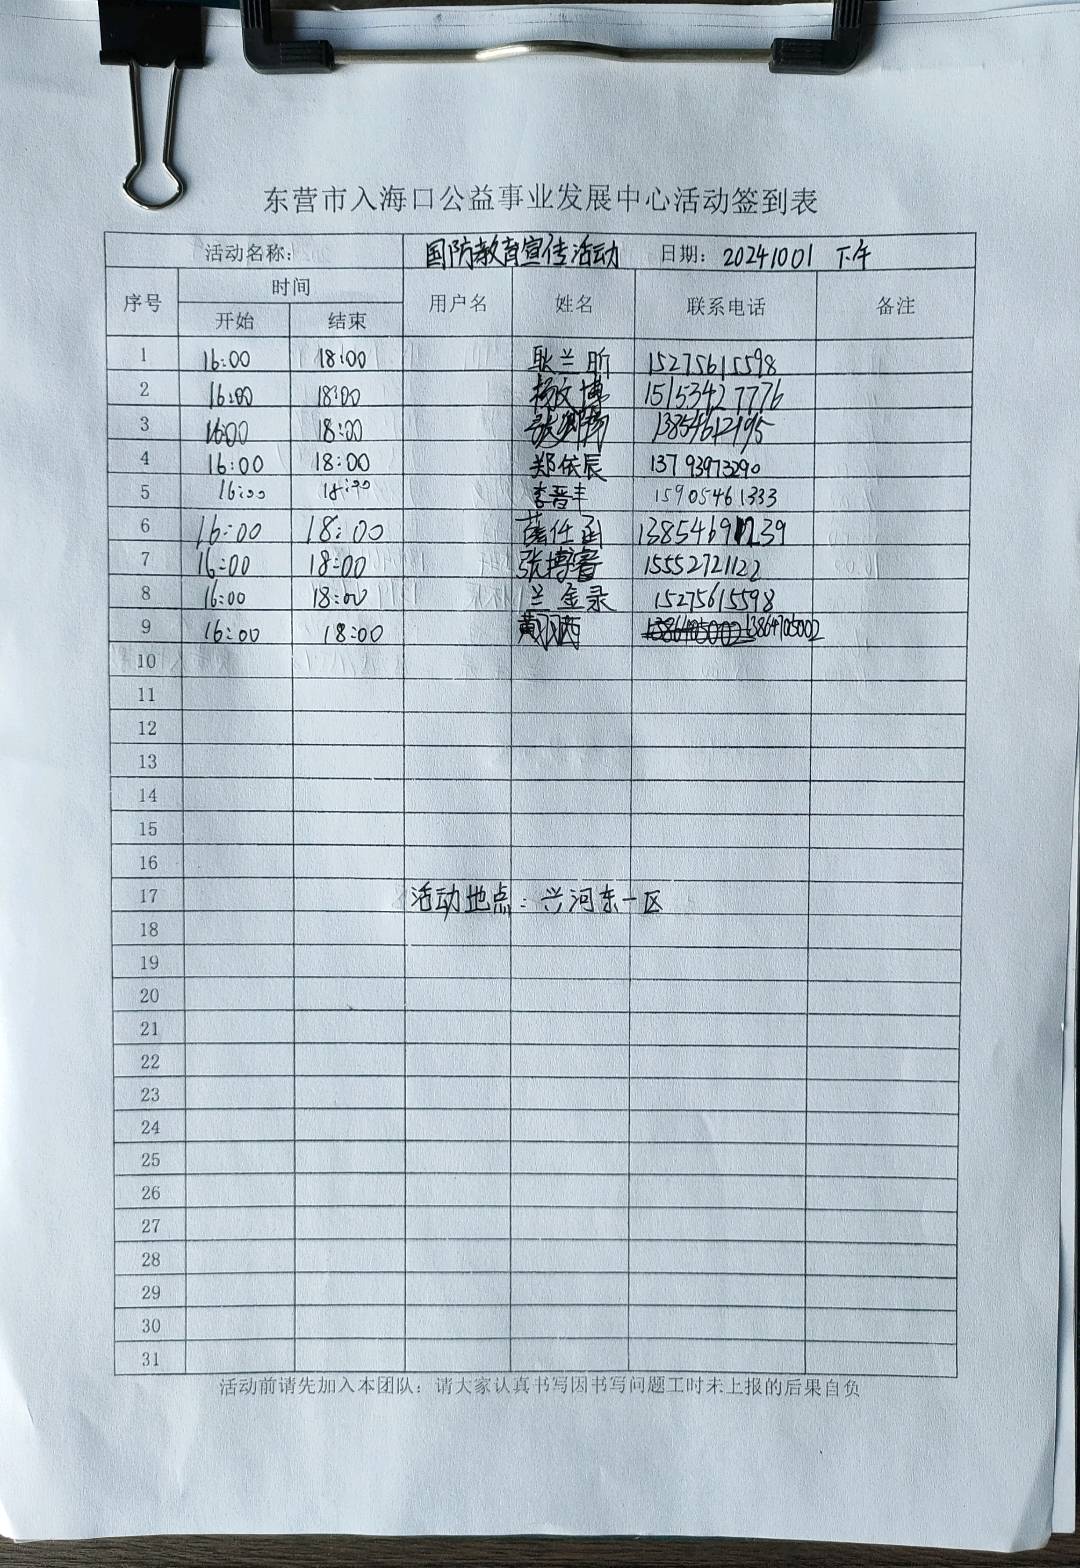 东营市入海口公益事业发展中心活动签到表
活动名称: 国防教育宣传活动 日期: 20241001 下午
序号 时间 用户名 姓名 联系电话 备注
开始 结束
1 16:00 18:00 耿兰昕 15275615598
2 16:00 18:00 杨文博 15153427776
3 16:00 18:00 13854612195
4 16:00 18:00 郑依辰 13793973290
5 16:00 18:00 李晋丰 15905461333
6 16:00 18:00 仕函
7 16:00 18:00 张博睿 15552721122
8 16:00 18:00 兰金录 15275615598
9 16:00 18:00 戴 西 13864705002
10
11
12
13
14
15
16
17 活动地点: 兴河东一区
18
19
20
21
22
23
24
25
26
27
28
29
30
31
活动前请先加入本团队: 请大家认真书写因书写问题工时未上报的后果自负